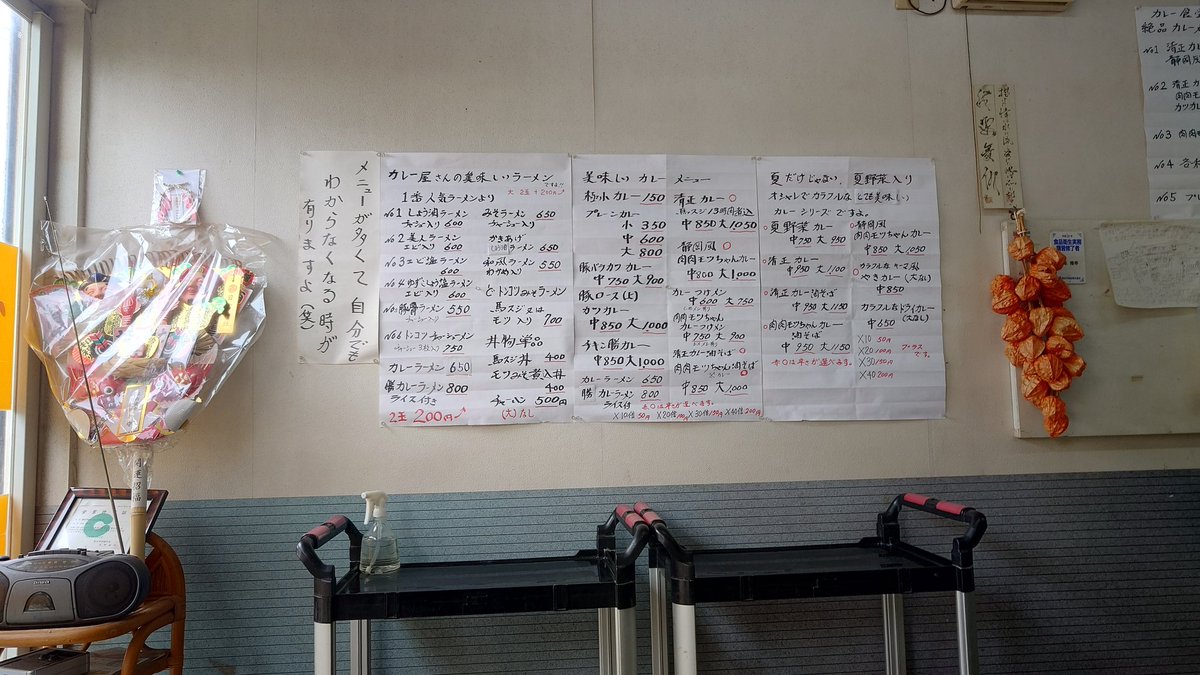 メニューがタタくて自分でも
わからなくなる時が
有りますよ(笑)
カレー屋さんの美味しいラーメン
ですよ!!
1番人気ラーメンより
大 2玉+200円
No1 しょう油ラーメン
チャシュー入り 600
No2 美人ラーメン
エビ入り 600
No3 エビ塩ラーメン
600
No4 ゆずしょう塩ラーメン
エビ入り 600
豚骨ラーメン 550
No6 トンコツチャーシューメン
750
カレーラーメン 650
勝カレーラーメン 800
ライス付き
2玉 200円
みそラーメン 650
チャシュー入り
かきあげ
ラーメン 650
和風ラーメン 550
わかめ入り
トンコツみそラーメン
馬スジ又は
モツ入り 700
丼物・単品
馬スジ丼 400
モツみそ煮込丼
400
チャーハン 500円
(大)なし
美味しいカレーメニュー
粉水カレー 150
プレーンカレー
小 350
中 600
大 800
豚バラカツカレー
中 750 大 900
豚ロース(上)
カツカレー
中850 大1000
チキン勝カレー
中850 大1000
カレーラーメン 650
勝カレーラーメン 800
ライス付
清正カレー ○
中850 大1050
静岡風 ○
肉肉モツちゃんカレー
中800 大1,000
カレーつけメン
中600 大750
肉肉モツちゃん
カレーつけメン
中750 大900
清正カレー油そば
肉肉モツちゃん油そば
中850 大1,000
赤○は辛さが選べます。
X10倍50円 X20倍100円 X30倍150円 X40倍200円
夏だけじゃない、夏野菜入り
オシャレでカラフルなとても美味しい
カレーシリーズですよ。
夏野菜カレー
中750 大950
清正カレー
中950 大1100
清正カレー油そば
中950 大1150
肉肉モツちゃんカレー
油そば
中950 大1150
赤○は辛さが選べます。
静岡風
肉肉モツちゃんカレー
中850 大1050
やきカレー(大なし)
中850
カラフルなドライカレー
(大なし)
中650
X10 50円
X20 100円
X30 150円
X40 200円
プラス
です。
カレー食堂
絶品カレーメ
No1 清正カ
静岡風
No2 清正
肉肉モ
カツカレ
No3 肉肉
No4
No5
食品衛生実務
講習修了者
開運招福